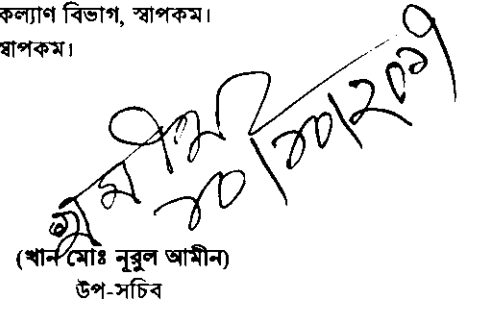 কল্যাণ বিভাগ, স্বাপকম।
স্বাপকম।
(খান মোঃ নূরুল আমীন)
উপ-সচিব